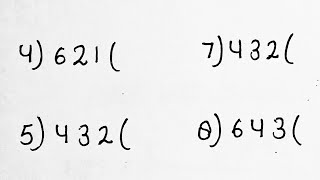 4) 621(
7) 432(
5) 432(
8) 643(